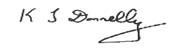 K J Donnelly